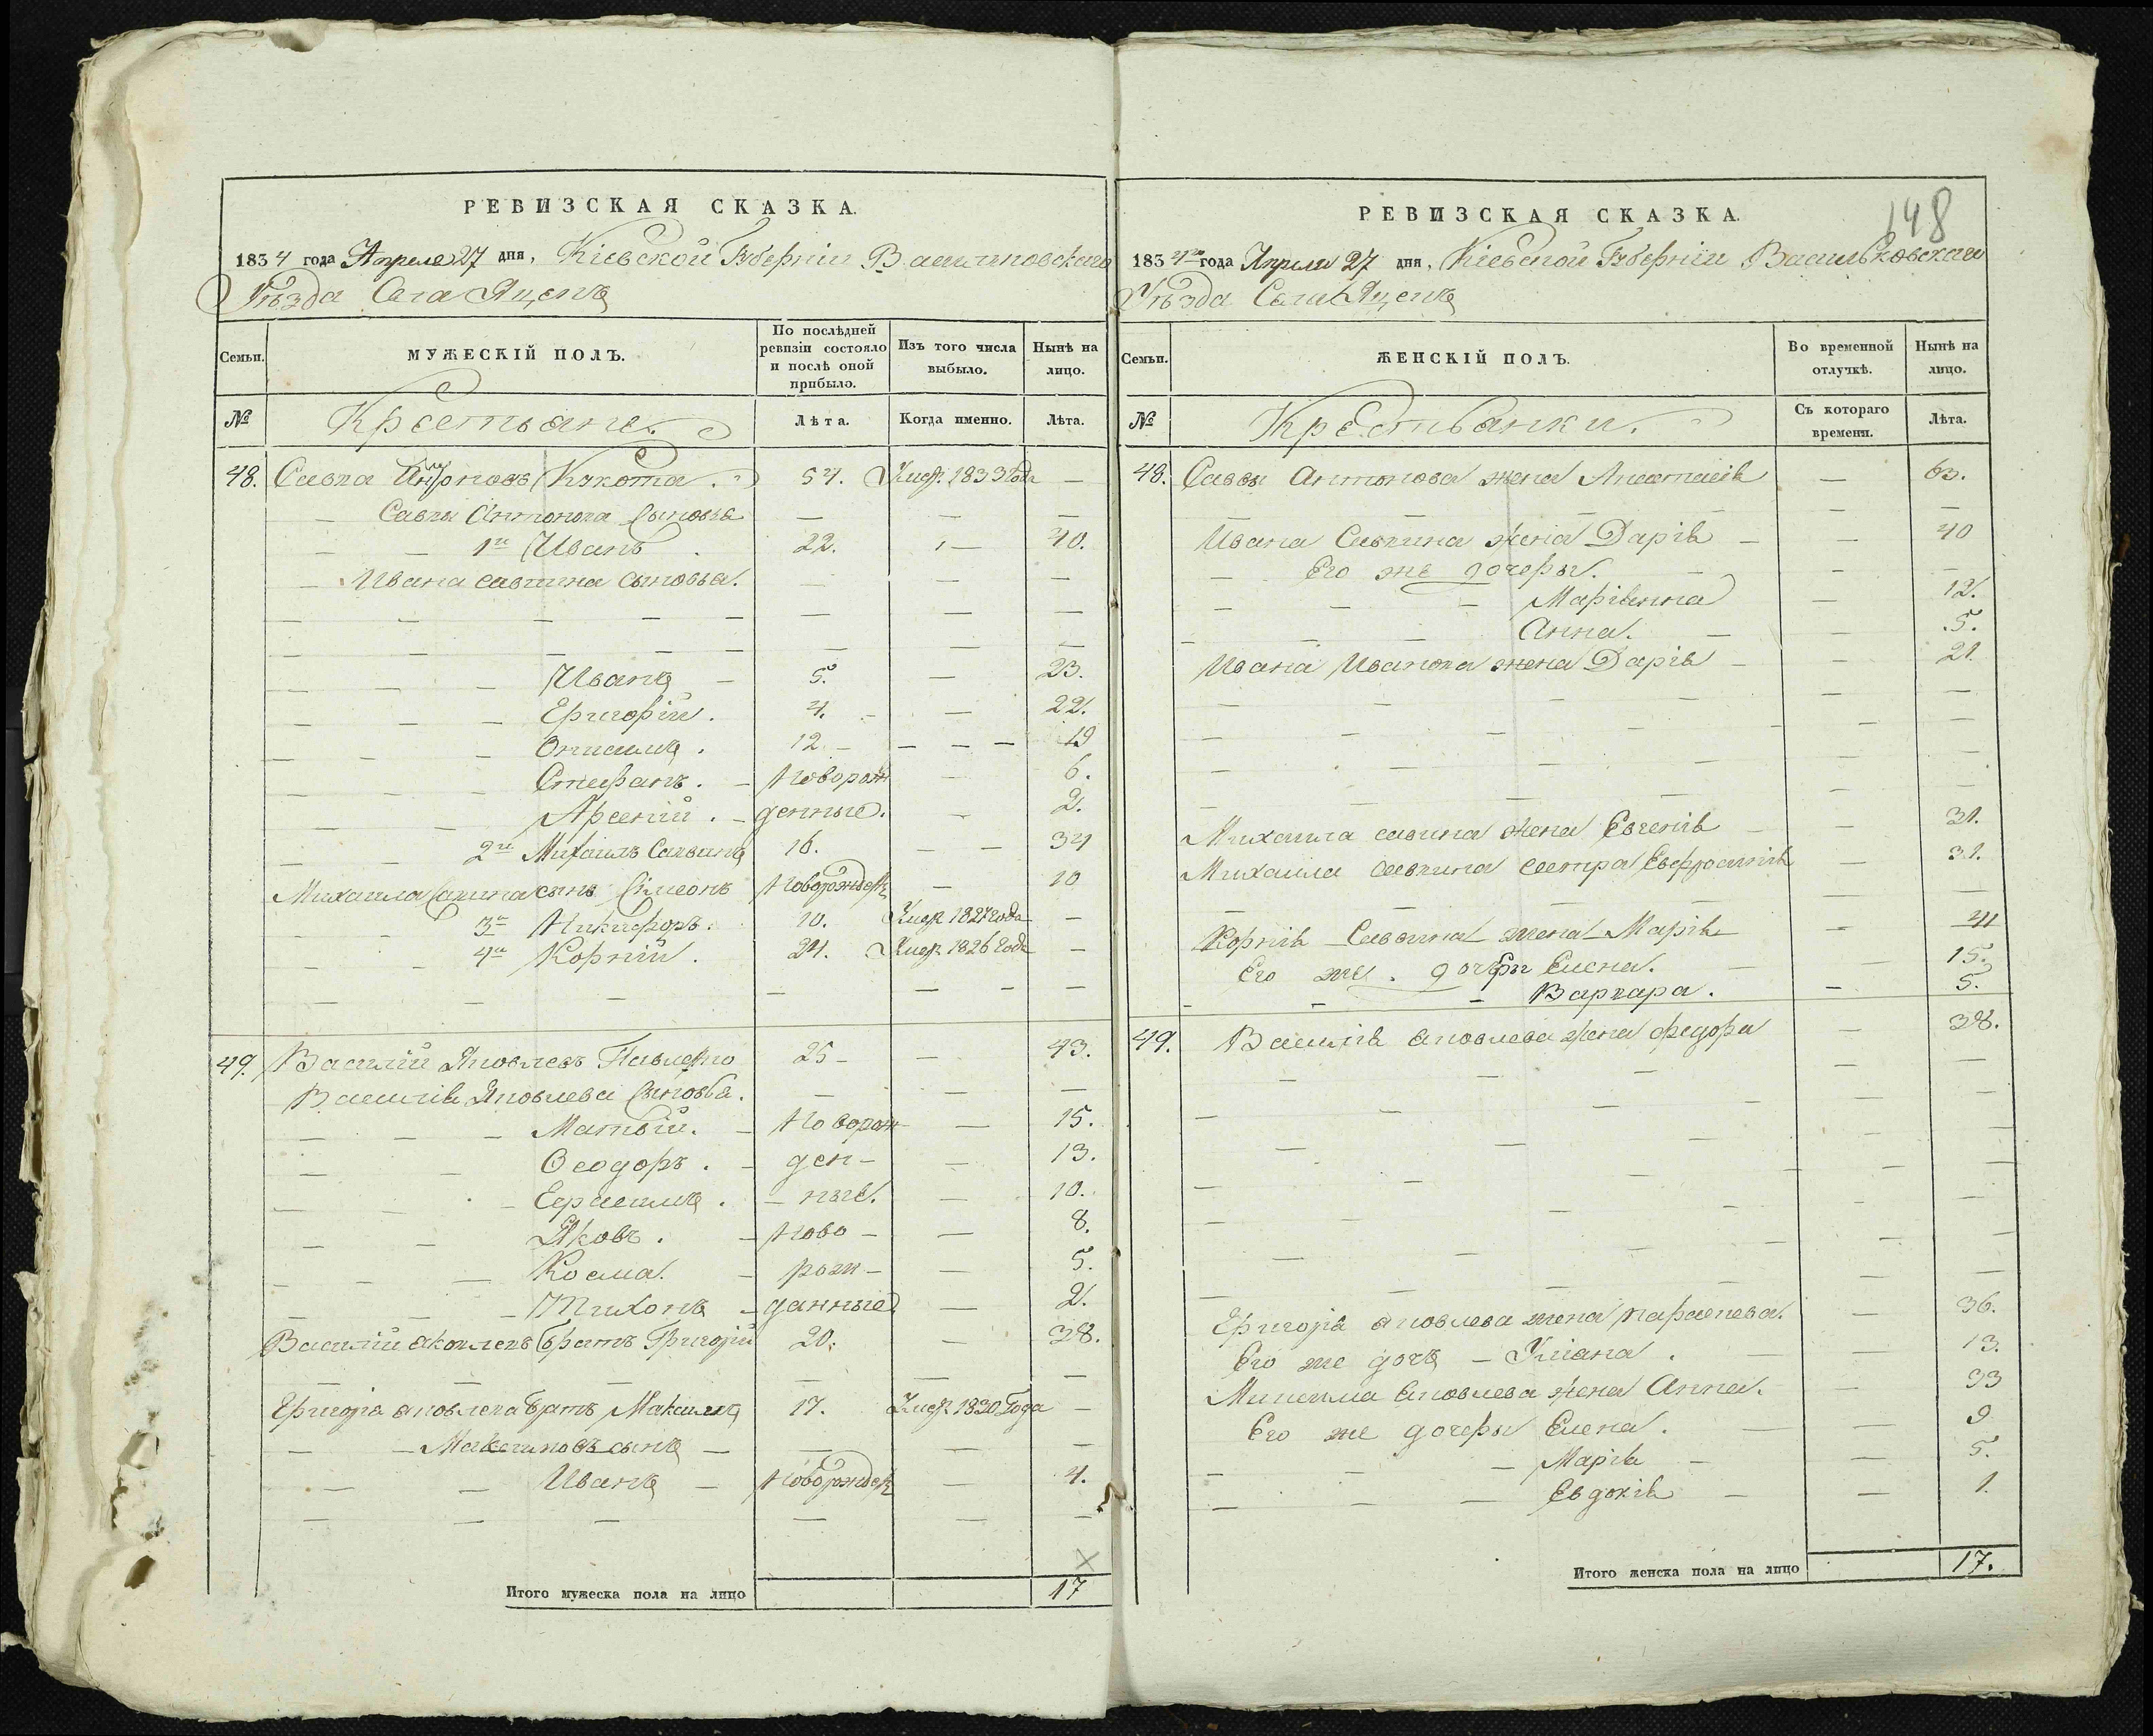 РЕВИЗСКАЯ СКАЗКА.
1834 года Апреля 27 дня, Кіевской Губерніи Васильковскаго
Уѣзда Села Яцекъ
Семьи.
МУЖЕСКІЙ ПОЛЪ.
По послѣдней ревизіи состояло и послѣ оной прибыло.
Изъ того числа выбыло.
Нынѣ на лицо.
№
Крестьяне.
Лѣта.
Когда именно.
Лѣта.
48. Савка Антоновъ Кукота. 54. Умер. 1833 года —
Савки Антонова сыновья — — —
1й Иванъ 22. — 40.
Ивана савкина сыновья. — — —
Иванъ 5. — 23.
Григорій. 4. — 22.
Онисимъ. 12 — 19
Стефанъ. Новорож — 6.
Арсеній. денные. — 2.
2й Михаилъ Савкинъ 16. — 34
Михаила Савкина сынъ Симеонъ Новорожден — 10
3й Никифоръ. 10. Умер. 1827 года —
4й Корній. 24. Умер. 1826 года —
49. Василій Яковлевъ Павленко 25 — 43.
Василія Яковлева Сыновья. — — —
Матвій.Новорож — 15.
Ѳеодоръ. ден — 13.
Герасимъ. ные. — 10.
Яковъ. Ново — 8.
Косма. рож — 5.
Тихонъ данные — 2.
Василій яковлевъ братъ Григорій 20. — 38.
Григорія яковлева братъ Максимъ 17. Умер. 1830 Года —
Максимовъ сынъ — — —
Иванъ Новорожден — 4.
Итого мужеска пола на лицо 17
148
РЕВИЗСКАЯ СКАЗКА.
1834го года Апреля 27 дня, Кіевской Губерніи Васильковскаго
Уѣзда Села Яцекъ
Семьи.
ЖЕНСКІЙ ПОЛЪ.
Во временной отлучкѣ.
Нынѣ на лицо.
№
Крестьянки.
Съ котораго времени.
Лѣта.
48. Саввы Антонова жена Анастасія — 63.
Ивана Савкина жена Дарія — 40
Его же дочеры. — —
Маріанна — 12.
Анна. — 5.
Ивана Иванова жена Дарія — 21.
Михаила савина жена Евгенія — 31.
Михаила савкина сестра Евфросинія — 31.
Корнія Саввина жена Марія — 41
Его же дочеры Елена. — 15.
Варвара. — 5.
49. Василія яковлева жена федора — 38.
Григорія яковлева жена параскева. — 36.
Его же дочь Уліана. — 13.
Максима яковлева жена Анна. — 33
Его же дочеры Елена. — 9
Марія — 5.
Евдокія — 1.
Итого женска пола на лицо 17.